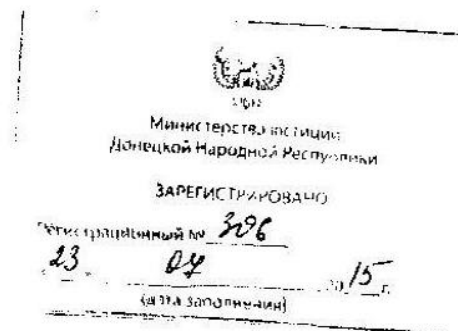 Министерство юстиции
Донецкой Народной Республики
ЗАРЕГИСТРИРОВАНО
Регистрационный № 306
23 07 2015 г.
(дата заполнения)